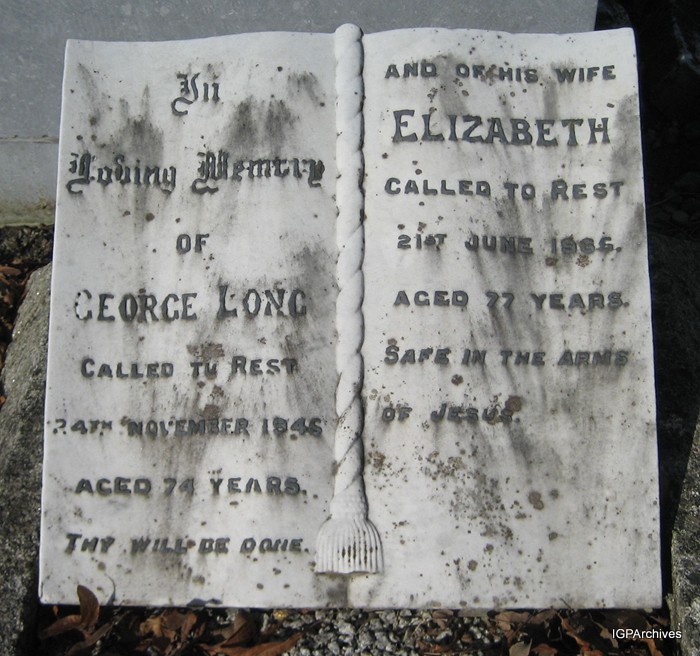 In
Loving Memory
OF
GEORGE LONG
CALLED TO REST
24TH NOVEMBER
AGED 74 YEARS.
THY WILL BE DONE.
AND OF HIS WIFE
ELIZABETH
CALLED TO REST
21ST JUNE
AGED 77 YEARS.
SAFE IN THE ARMS
OF JESUS.
IGPArchives